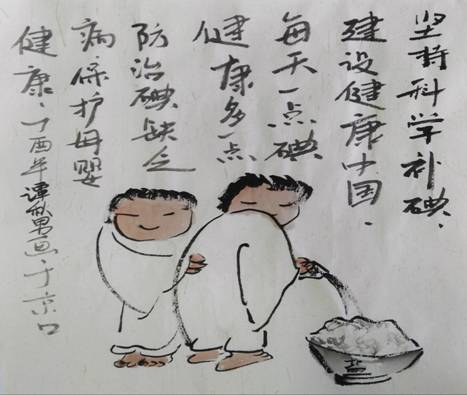 坚持科学补碘、
建设健康中国.
每天一点碘
健康多一点
防治碘缺乏
病.保护母婴
健康.丁酉年男画于京口
盐